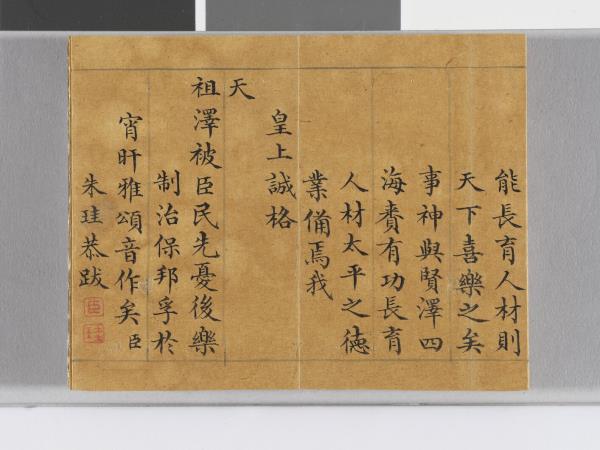 能長育人材則
天下喜樂之矣
事神與賢澤四
海賚有功長育
人材太平之德
業備焉我
皇上誠格
天
祖澤被臣民先憂後樂
制治保邦孚於
宵旰雅頌音作矣臣
朱珪恭跋
臣
珪